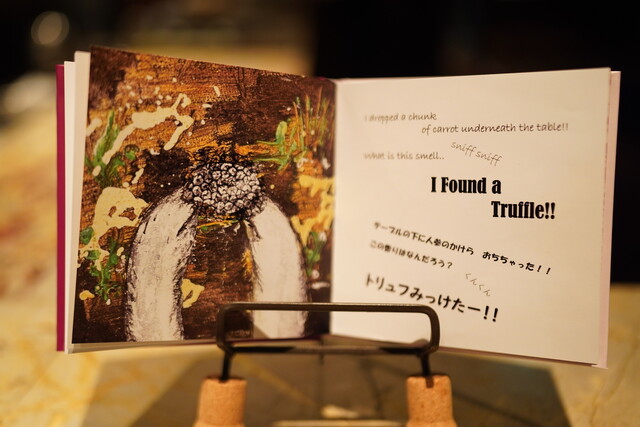 I dropped a chunk
of carrot underneath the table!!
What is this smell..
sniff sniff
I Found a
Truffle!!
テーブルの下に人参のかけら おちちゃった！！
この香りはなんだろう？
くんくん
トリュフみっけたー！！